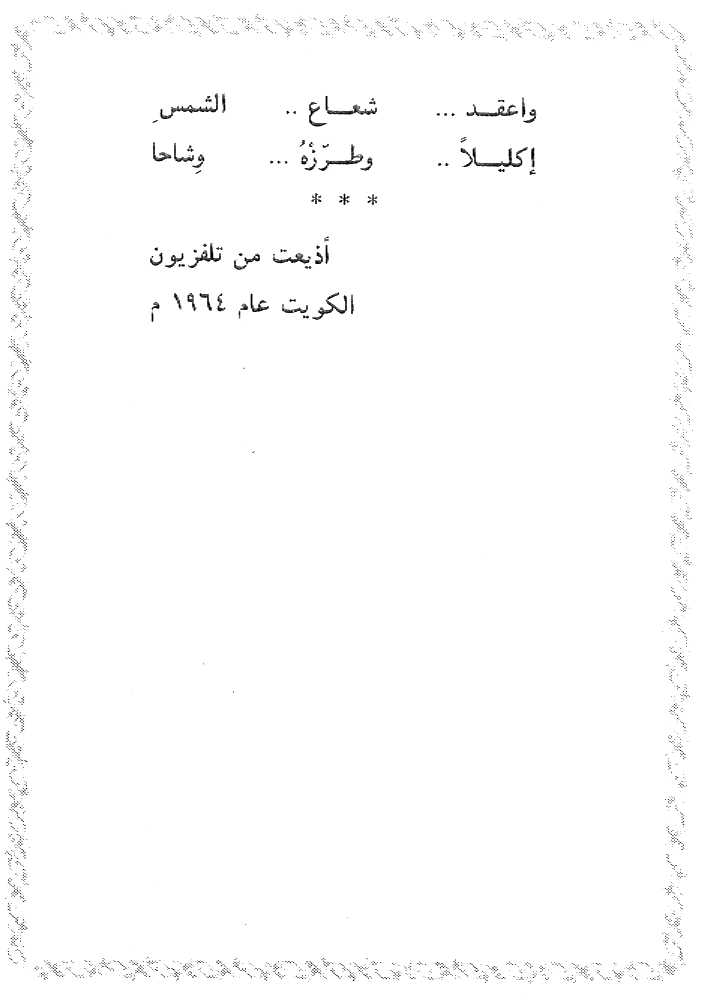 واعقـد ... شعـاع .. الشمسِ
إكليـلاً .. وطـرّزْهُ ... وِشاحا
* * *
أذيعت من تلفزيون
الكويت عام ١٩٦٤ م